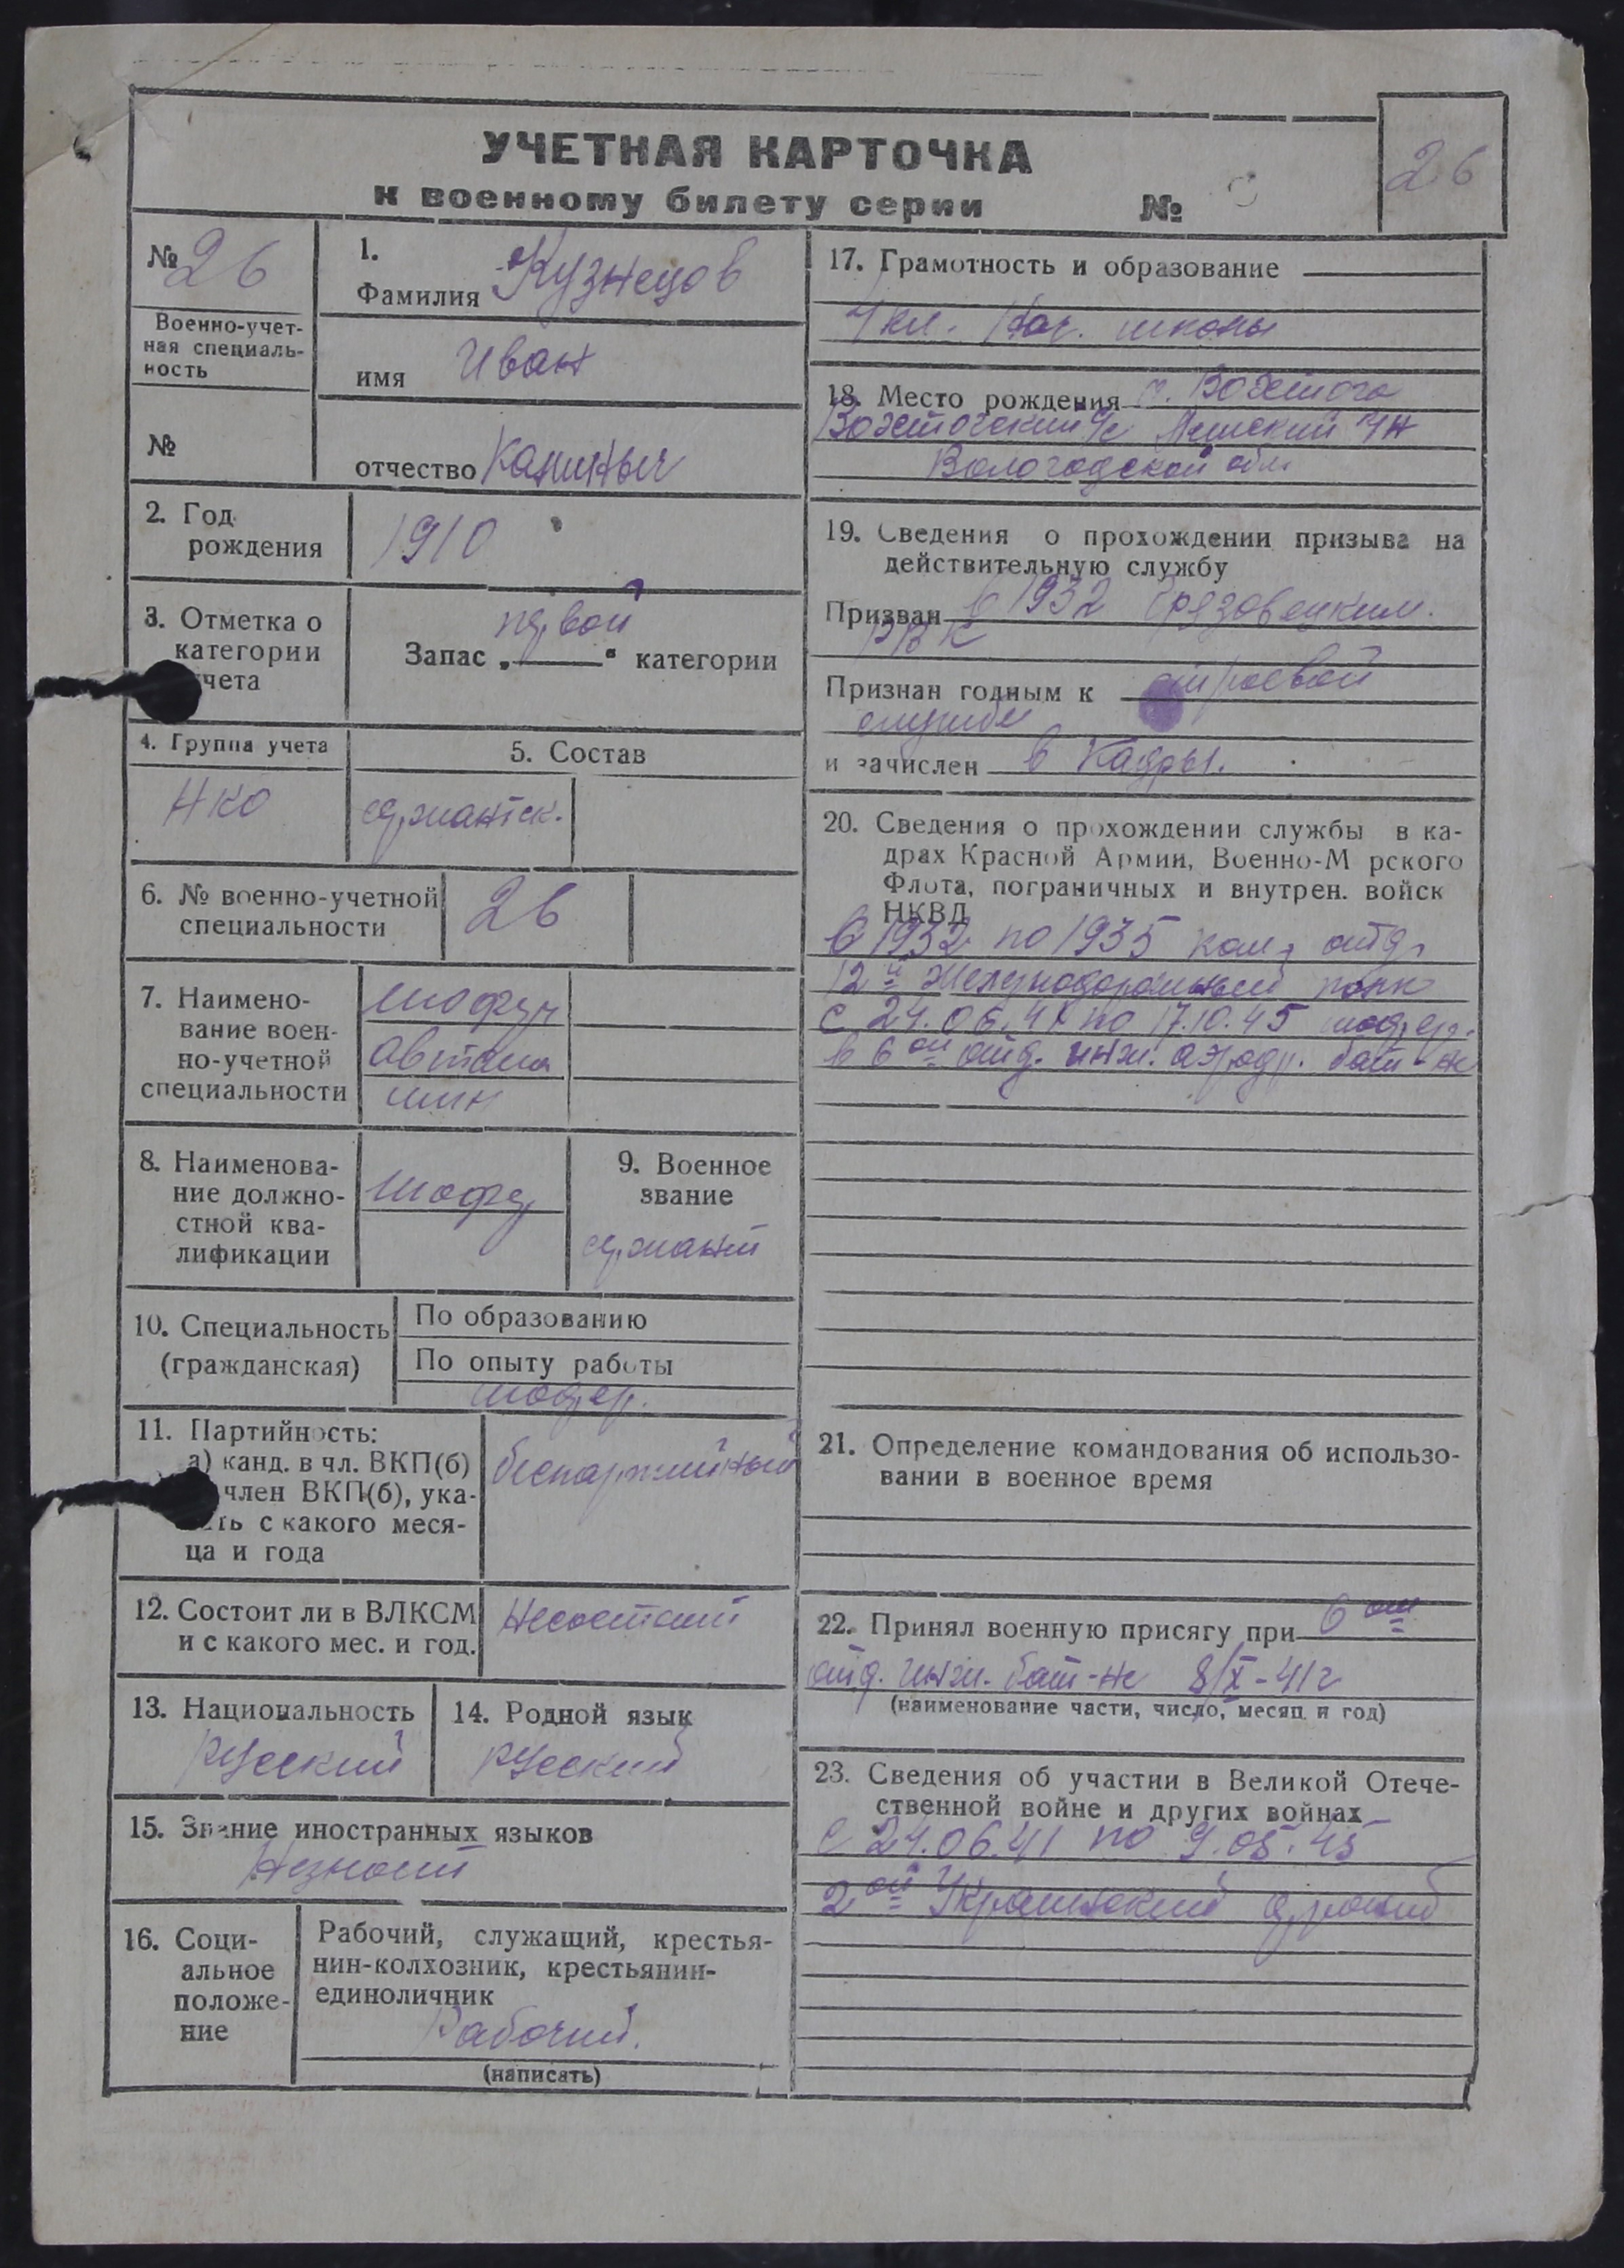 УЧЕТНАЯ КАРТОЧКА
к военному билету серии №
26
№ 26
Военно-учет-
ная специаль-
ность
№
1.
Фамилия Кузнецов
имя Иван
отчество
2. Год
рождения
1910
3. Отметка о
категории
чета
первой
Запас „ “ категории
4. Группа учета
НКО
5. Состав
сержантск.
6. № военно-учетной
специальности
26
7. Наимено-
вание воен-
но-учетной
специальности
шофер
автома
шин
8. Наименова-
ние должно-
стной ква-
лификации
шофер
9. Военное
звание
сержант
10. Специальность
(гражданская)
По образованию
По опыту работы
шофер.
11. Партийность:
а) канд. в чл. ВКП(б)
член ВКП(б), ука-
ть с какого меся-
ца и года
беспартийный
12. Состоит ли в ВЛКСМ
и с какого мес. и год.
Несостоит
13. Национальность
русский
14. Родной язык
русский
15. Знание иностранных языков
Незнает
16. Соци-
альное
положе-
ние
Рабочий, служащий, крестья-
нин-колхозник, крестьянин-
единоличник
Рабочий.
(написать)
17. Грамотность и образование
кл. Нач. школы
18. Место рождения
с/с
Вологодской обл
19. Сведения о прохождении призыва на
действительную службу
Призван в 1932 Грязовецким.
РВК
Признан годным к строевой
службе
и зачислен в Кадры.
20. Сведения о прохождении службы в ка-
драх Красной Армии, Военно-М рского
Флота, пограничных и внутрен. войск
НКВД
С 1932 по 1935 ком. отд.
12й железнодорожный полк
с 24.06.41 по 17.10.45 шофер.
в 6ой отд. инж. аэродр. бат-не
21. Определение командования об использо-
вании в военное время
22. Принял военную присягу при 6ом
отд. инж. бат-не 8/X-41г
(наименование части, число, месяц и год)
23. Сведения об участии в Великой Отече-
ственной войне и других войнах
с 24.06.41 по 9.05.45
2ой Украинский фронт